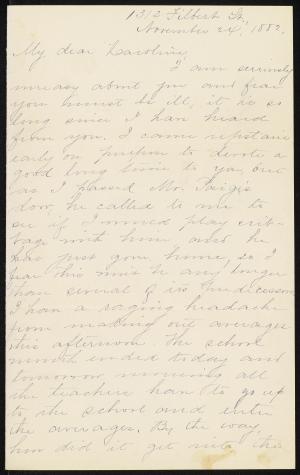 1312 Filbert St.
November 24, 1882.
My dear Caroline,
I am seriously
uneasy about you and fear
you must be ill, it is so
long since I have heard
from you. I came upstairs
early on purpose to devote a
good long time to you, but
as I passed Mr. Paige's
door, he called to me to
see if I would play crib-
bage with him and he
has just gone home, so I
fear this won't be any longer
than several of its predecessors.
I have a raging headache
from making out averages
this afternoon. The school
month ended today and
tomorrow morning all
the teachers have to go up
to the school and enter
the averages. By the way,
how did it get into the